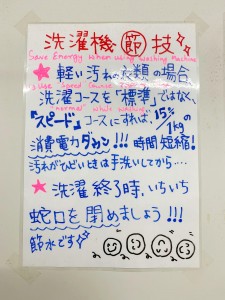 洗濯機 節 技
Save Energy when using washing Machine
★ 軽い汚れの衣類の場合
洗濯コースを「標準」ではなく、
"normal" while washing
「スピード」コースにすれば、15%/1kgの
消費電力ダウン!!! 時間短縮!
汚れがひどいときは手洗いしてから....
★ 洗濯終了時、いちいち
蛇口を閉めましょう!!!
節水です